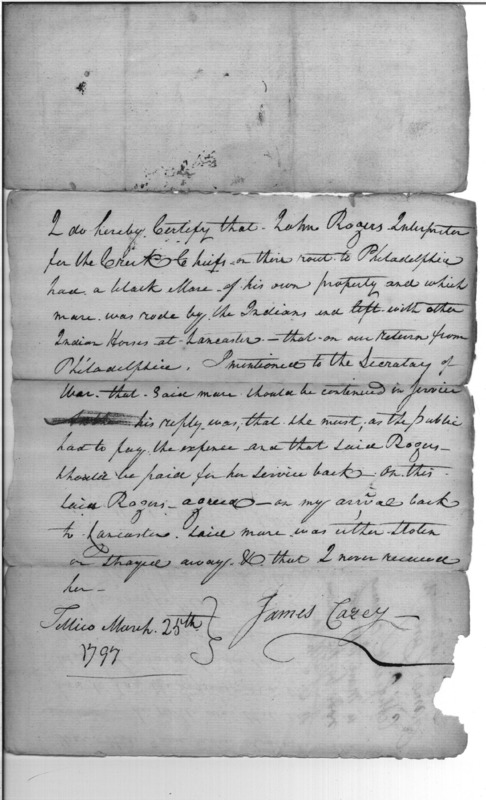 I do hereby Certify that John Rogers Interpreter
for the Creek Chiefs on their rout to Philadelphia
had a black Mare of his own property and which
mare was rode by the Indians and left with other
Indian Horses at Lancaster — that on our return from
Philadelphia. I mentioned to the Secratary of
War that Said mare should be contenued in Service
his reply was, that she must, as the public
had to pay the expence and that said Rogers
should be paid for her service back. on this
said Rogers agreed — on my arival back
to Lancaster. said mare was either stolen
or Strayed away. & that I never received
her —
Tellico March 25th
1797
James Carey